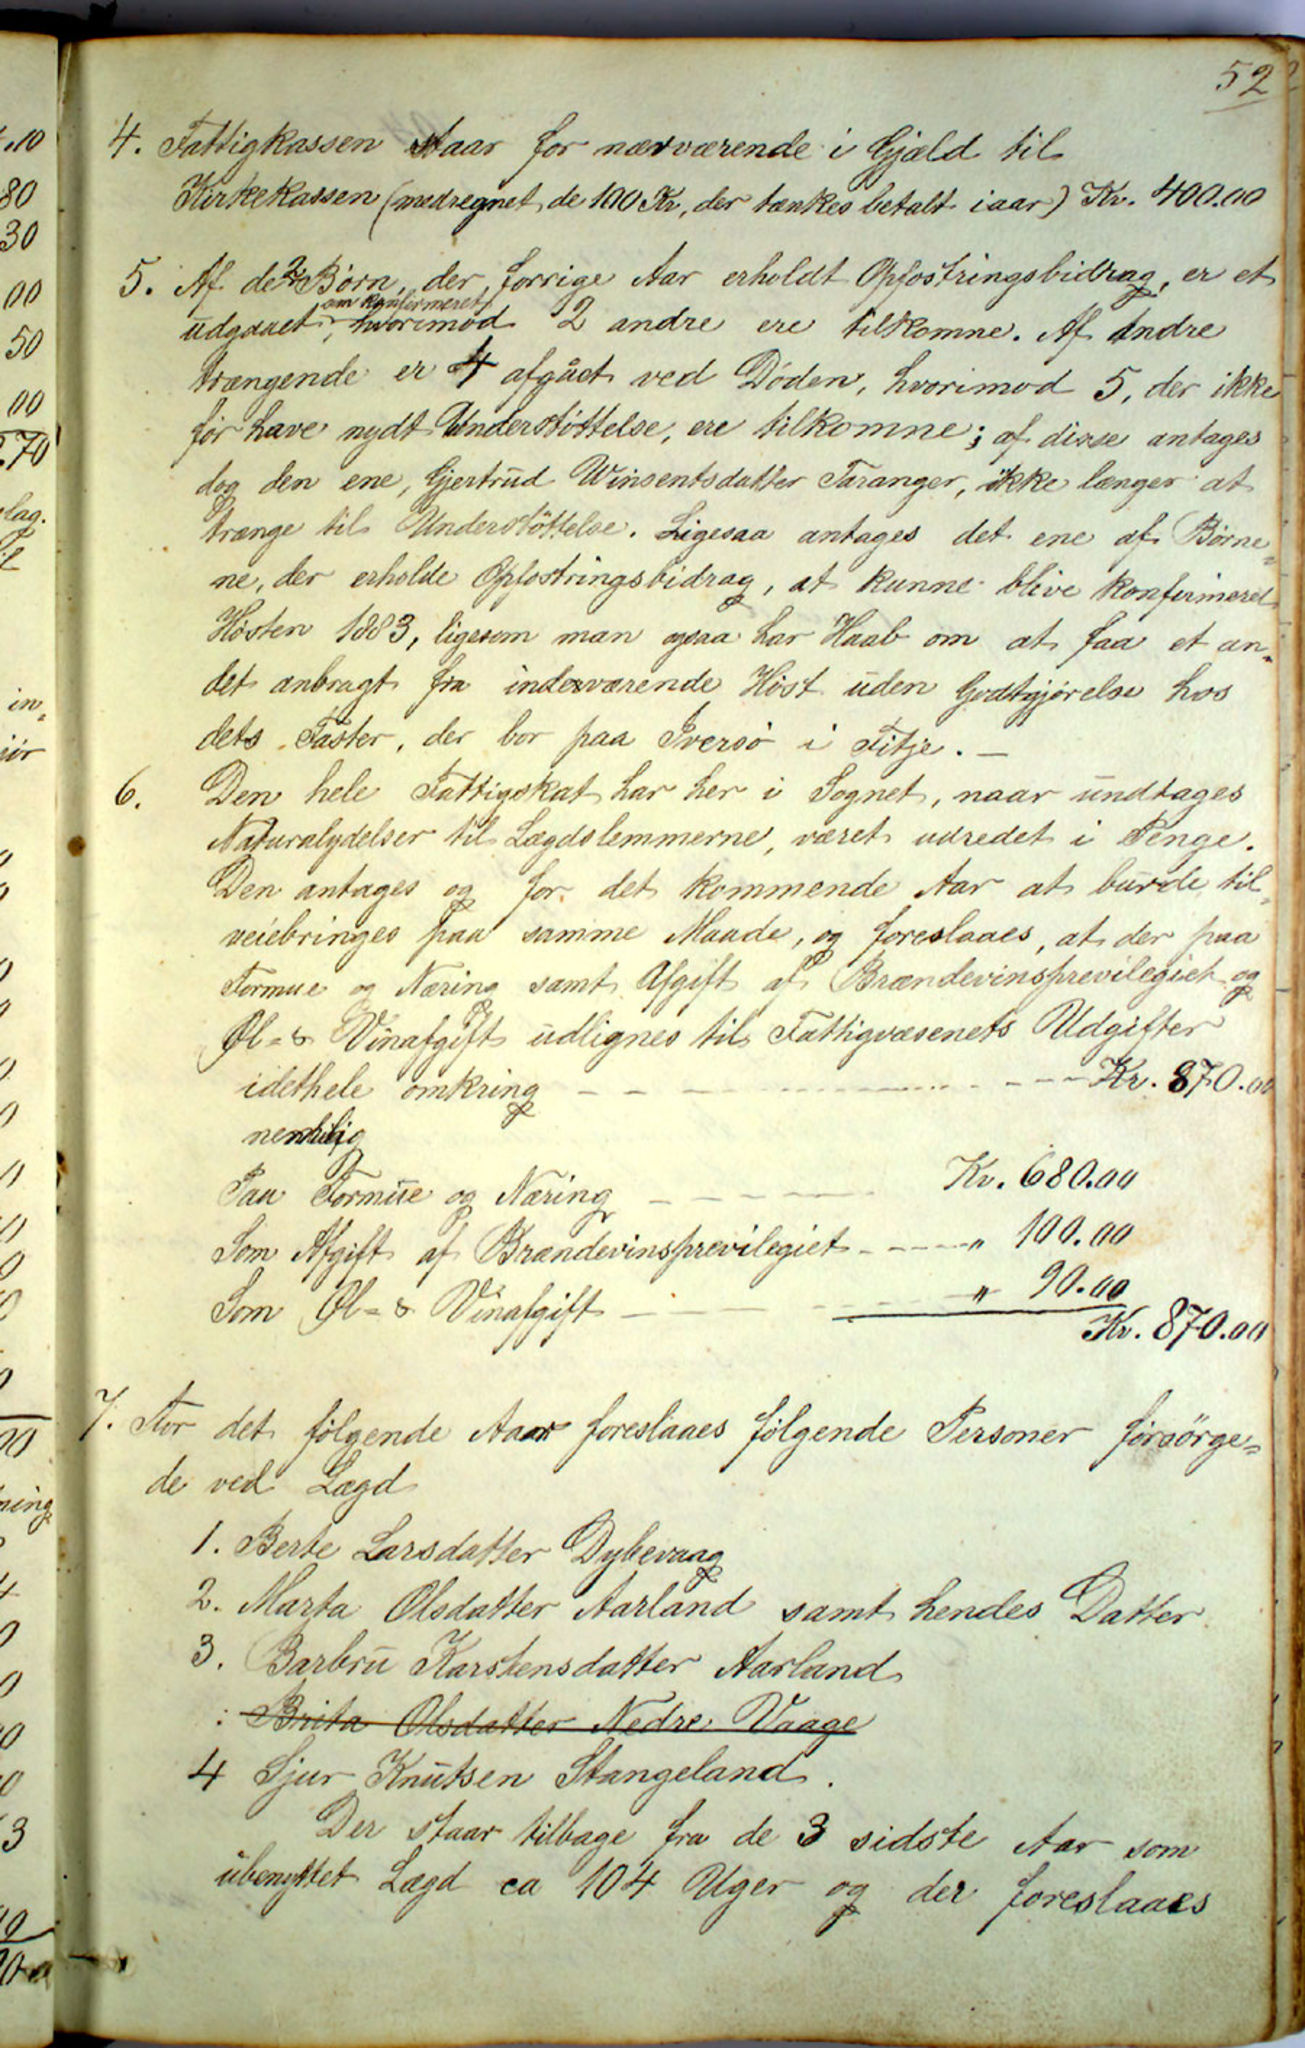 52
4. Fattigkassen staar for nærværende i Gjæld til
Kirkekassen (medregnet de 100 Kr, der tænkes betalt iaar) Kr. 400.00
5. Af de 2 Børn, der forrige Aar erholdt Opfostringsbidrag, er et
udgaaet som konfirmeret, hvorimod 2 andre ere tilkomne. Af Andre
trængende er 4 afgået ved Døden, hvorimod 5, der ikke
før have nydt Understøttelse, ere tilkomne; af disse antages
dog den ene, Gjertrud Winsentsdatter Taranger, ikke længer at
trænge til Understøttelse. Ligesaa antages det ene af Børne-
ne, der erholde Opfostringsbidrag, at kunne blive konfirmeret
Høsten 1883, ligesom man ogsaa har Haab om at faa et an-
det anbragt fra indeværende Høst uden Godtgjørelse hos
dets Faster, der bor paa Iversø i Fitje. —
6. Den hele Fattigskat har her i Sognet, naar undtages
Naturalydelser til Lægdslemmerne, været udredet i Penge.
Den antages og for det kommende Aar at burde til-
veiebringes paa samme Maade, og foreslaaes, at der paa
Formue og Næring samt Afgift af Brændevinsprevilegiet og
Øl- & Vinafgift udlignes til Fattigvæsenets Udgifter
idethele omkring — — — — — Kr. 870.00
nemlig
Paa Formue og Næring — — — — Kr. 680.00
Som Afgift af Brændevinsprevilegiet - - - - " 100.00
Som Øl- & Vinafgift — — — — " 90.00
Kr. 870.00
7. For det følgende Aar foreslaaes følgende Personer forsørge-
de ved Lægd
1. Berte Larsdatter Dybevaag
2. Marta Olsdatter Aarland samt hendes Datter
3. Barbru Karstensdatter Aarland
: Brita Olsdatter Nedre Vaage
4 Sjur Knutsen Stangeland.
Der staar tilbage fra de 3 sidste Aar som
ubenyttet Lægd ca 104 Uger og der foreslaaes